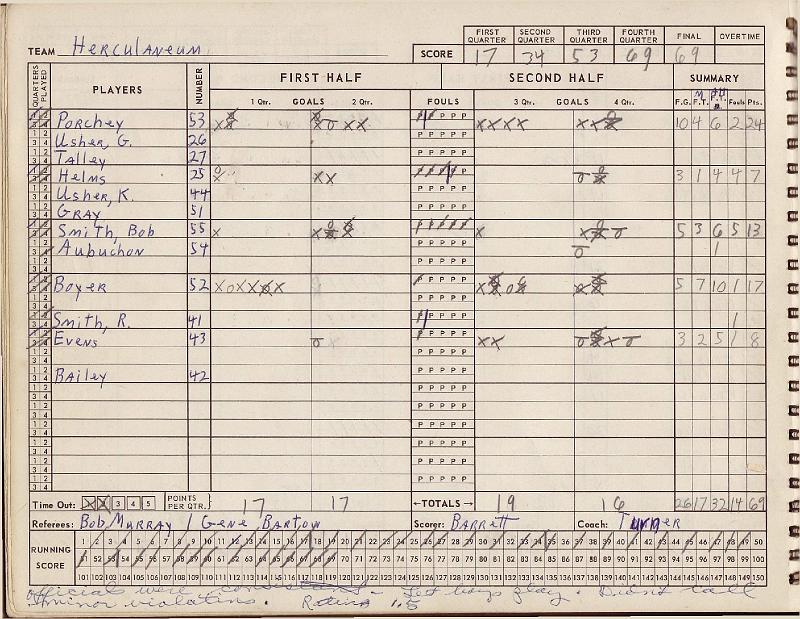 FIRST QUARTER SECOND QUARTER THIRD QUARTER FOURTH QUARTER FINAL OVERTIME
TEAM Herculaneum SCORE 17 34 53 69 69
QUARTERS PLAYED PLAYERS NUMBER FIRST HALF SECOND HALF SUMMARY
1 Qtr. GOALS 2 Qtr. FOULS 3 Qtr. GOALS 4 Qtr. F.G. F.T. Fouls Pts.
Porchey 53 10 4 6 2 24
Usher, G. 26
Talley 27
Helms 25 3 1 4 4 7
Usher, K. 44
Gray 51
Smith, Bob 55 5 3 6 5 13
Aubuchon 54 1
Boyer 52 5 7 10 1 17
Smith, R. 41 1
Evens 43 3 2 5 1 8
Bailey 42
Time Out: 1 2 3 4 5 POINTS PER QTR. 17 17 ←TOTALS→ 19 16 26 17 32 14 69
Referees: Bob Murray / Gene Bartow Scorer: Barrett Coach: Turner
1 2 3 4 5 6 7 8 9 10 11 12 13 14 15 16 17 18 19 20 21 22 23 24 25 26 27 28 29 30 31 32 33 34 35 36 37 38 39 40 41 42 43 44 45 46 47 48 49 50
RUNNING SCORE 51 52 53 54 55 56 57 58 59 60 61 62 63 64 65 66 67 68 69 70 71 72 73 74 75 76 77 78 79 80 81 82 83 84 85 86 87 88 89 90 91 92 93 94 95 96 97 98 99 100
101 102 103 104 105 106 107 108 109 110 111 112 113 114 115 116 117 118 119 120 121 122 123 124 125 126 127 128 129 130 131 132 133 134 135 136 137 138 139 140 141 142 143 144 145 146 147 148 149 150
Officials were consistant - Let boys play. Didn't call
minor violations. Rating 1.5